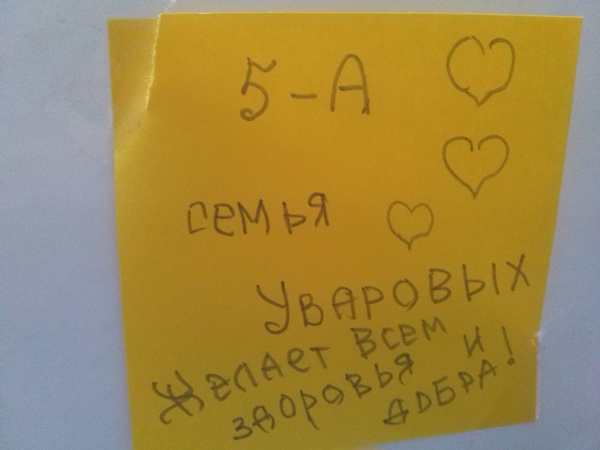 5-А
семья
УВАРОВЫХ
ЖЕЛАЕТ ВСЕМ
ЗДОРОВЬЯ И
ДОБРА!